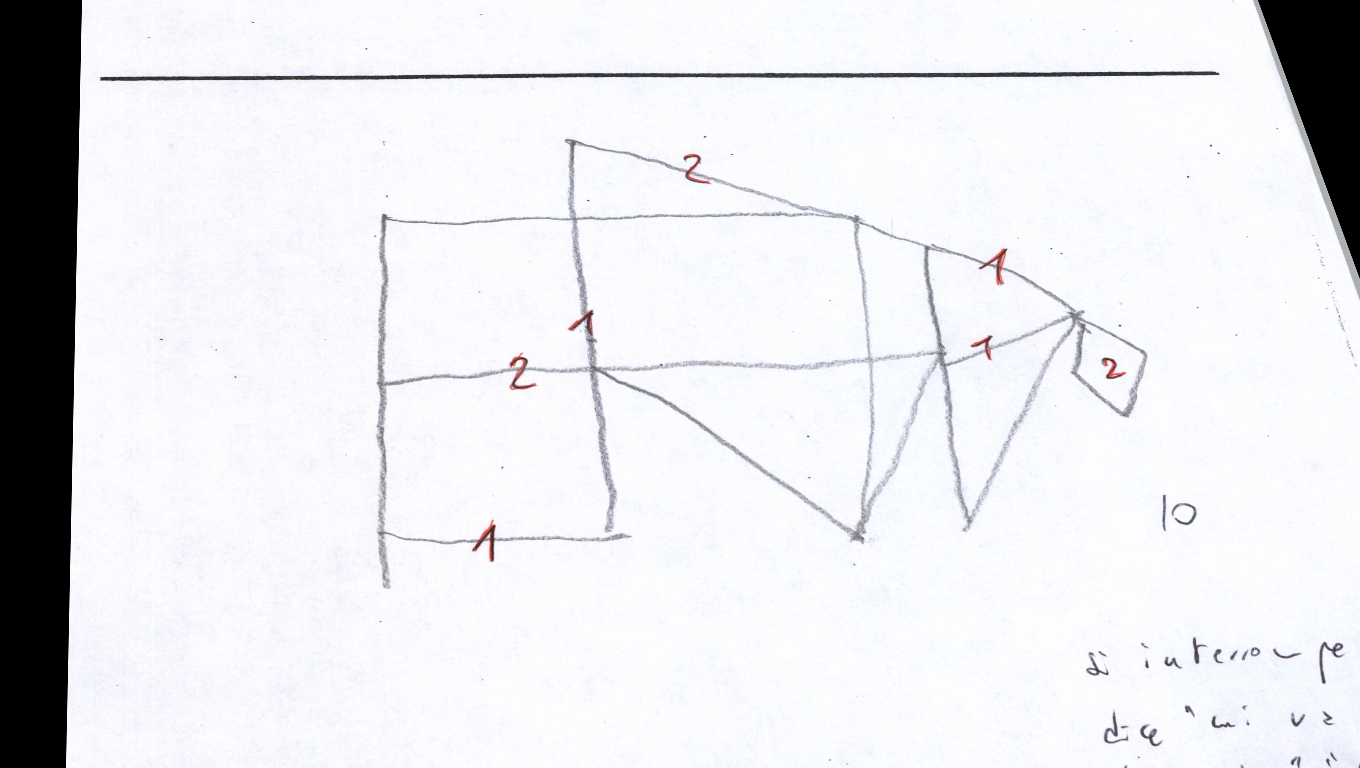 2
1
1
2
1
2
1
10
si interrompe
dice "mi va